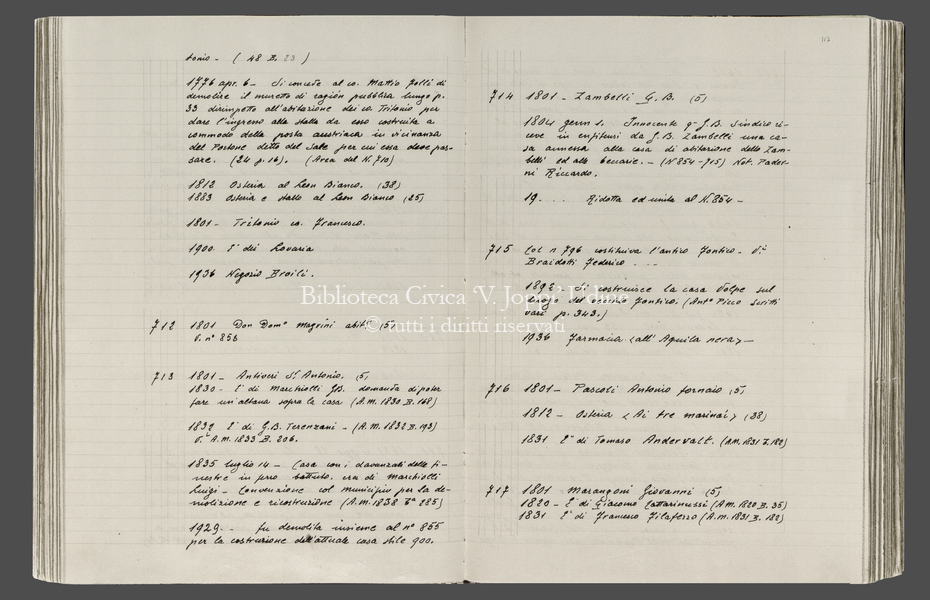 tonio - ( 48 II. 23 )
1776 apr. 6 - Si concede al co. Mattio Zolli di
demolire il muretto di ragion pubblica lungo p.
33 dirimpetto all'abitazione dei co. Tritonio per
dare l'ingresso alla stalla da esso costruita a
commodo della posta austriaca in vicinanza
del Portone detto del Sale per cui essa deve pas-
sare. (24 p. 16). (Area del N. 710)
1812 Osteria al Leon Bianco. (38)
1883 Osteria e stallo al Leon Bianco (25)
1801 - Tritonio co. Francesco.
1900 È dei Lovaria
1936 Negozio Broili.
712 1801 Don Domo Magrini abite (5)
V. no 856
713 1801 - Antivari Sr. Antonio. (5)
1830 - È di Marchiolli GB. domanda di poter
fare un'altana sopra la casa (A.M. 1830 II. 168)
1832 È di G.B. Terenzani - (A.M. 1832 II. 193)
V. A.M. 1833 II. 206.
1835 luglio 14 - Casa con i davanzali delle fi-
nestre in ferro battuto, era di Marchiolli
Luigi - Convenzione col municipio per la de-
molizione e ricostruzione (A.M. 1838 285)
1929 - fu demolita insieme al no 855
per la costruzione dell'attuale casa stile 900.
117
714 1801 - Zambelli G. B. (5)
1804 genn 1. Innocente q. G.B. Sindico ri-
ceve in enfiteusi da G.B. Zambelli una ca-
sa annessa alla casa di abitazione dello Zam-
belli ed alle beccarie. - (N 854-715) Not. Pader-
ni Riccardo.
19 . . . . Ridotta ed unita al N. 854 -
715 Col n 796 costituiva l'antico Fontico. Vi
Braidotti Federico . . . .
1892 Si costruisce la casa Volpe sul
luogo del vecchio Fontico. (Anto Picco scritti
vari p. 343.)
1936 Farmacia <all' Aquila nera> -
716 1801 - Pascoli Antonio fornaio (5)
1812 - Osteria <Ai tre marinai> (38)
1831 È di Tomaso Andervalt. (A.M. 1831 I. 182)
717 1801 Marangoni Giovanni (5)
1820 - È di Giacomo Cattarinussi (A.M. 1820 II. 35)
1831 È di Francesco Filaferro (A.M. 1831 II. 182)
Biblioteca Civica 'V. Joppi' Udine
© tutti i diritti riservati